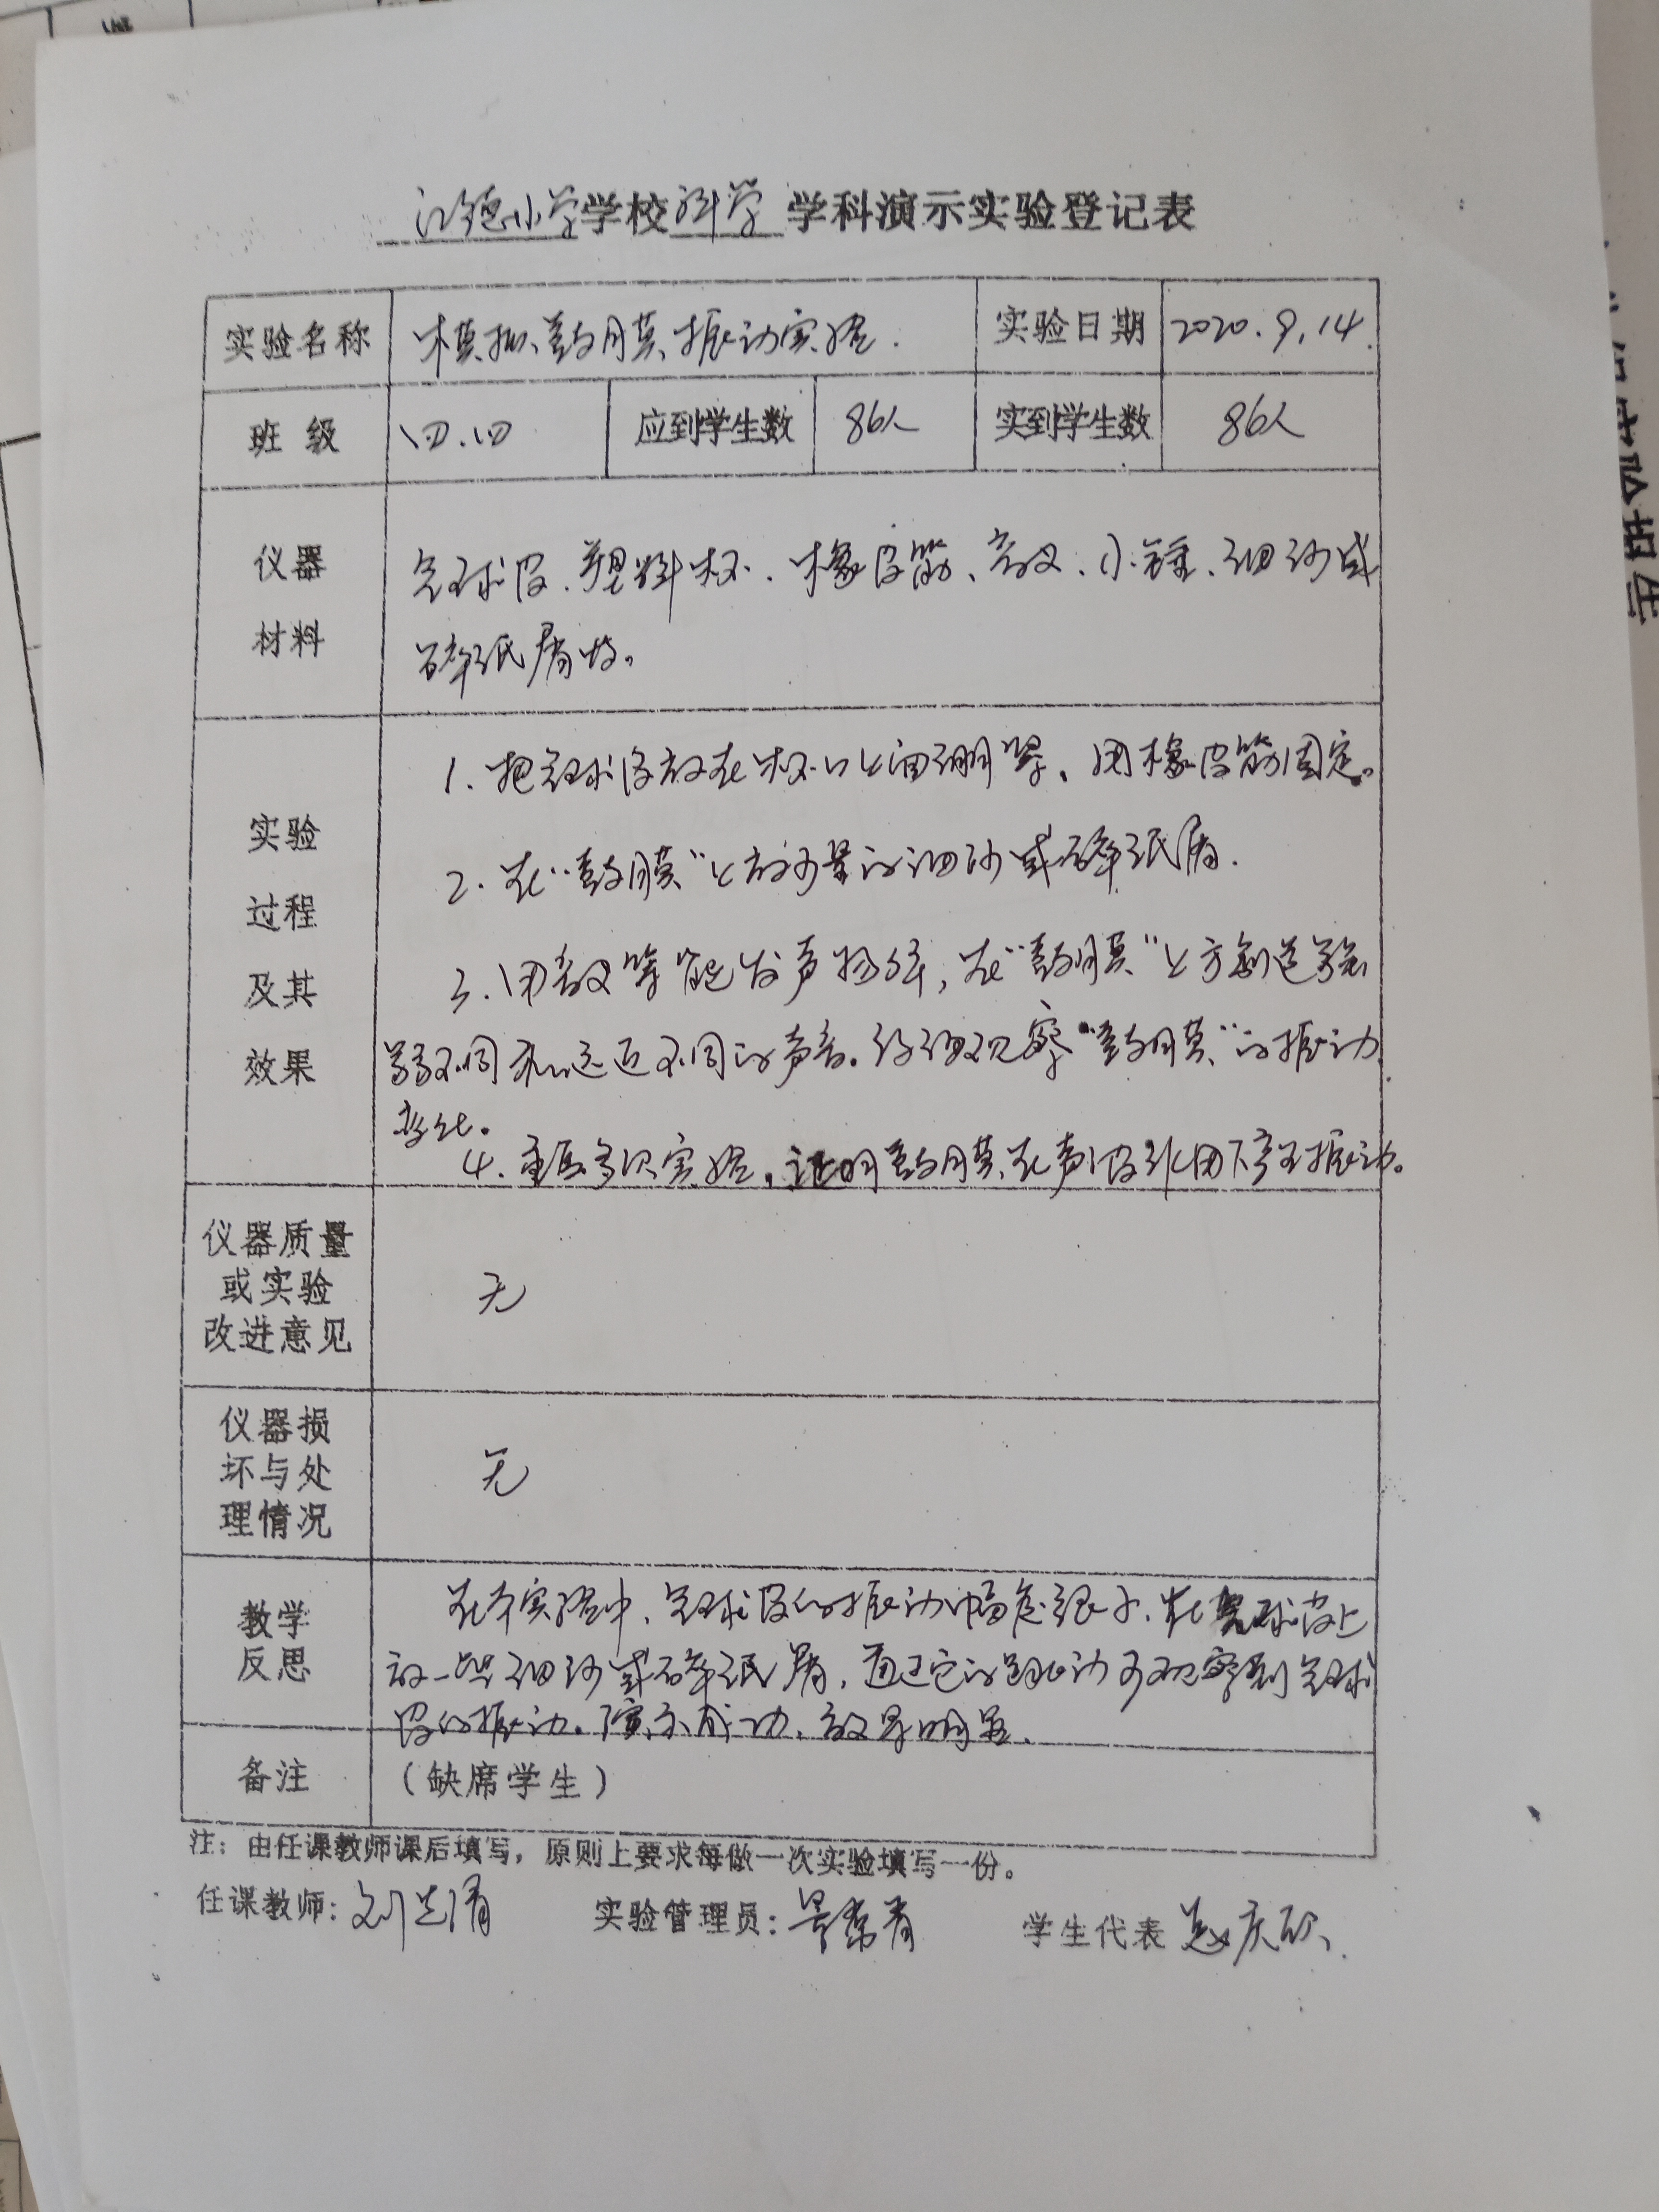 小学学校 科学 学科演示实验登记表
实验名称 模拟鼓膜振动实验. 实验日期 2020.9.14.
班级 四.四 应到学生数 86人 实到学生数 86人
仪器
材料
气球皮、塑料杯、橡皮筋、音叉、小锤、细沙或
碎纸屑等。
实验
过程
及其
效果
1. 把气球皮放在杯口上面绷紧,用橡皮筋固定。
2. 在“鼓膜”上放少量的细沙或碎纸屑.
3. 用音叉等能发声物体,在“鼓膜”上方制造强
弱不同和远近不同的声音。仔细观察“鼓膜”的振动
变化。
4. 重复多次实验,证明鼓膜在声波作用下产生振动。
仪器质量
或实验
改进意见
无
仪器损
坏与处
理情况
无
教学
反思
在本实验中,气球皮的振动幅度很小,在气球皮上
放一些细沙或碎纸屑,通过它的跳动可观察到气球
皮的振动。演示成功,效果明显.
备注 (缺席学生)
注:由任课教师课后填写,原则上要求每做一次实验填写一份。
任课教师:刘 实验管理员: 学生代表